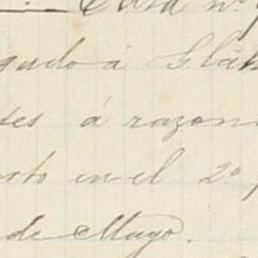 Casa nº
gado á
tes á razon
sto en el 2º
de Mayo.